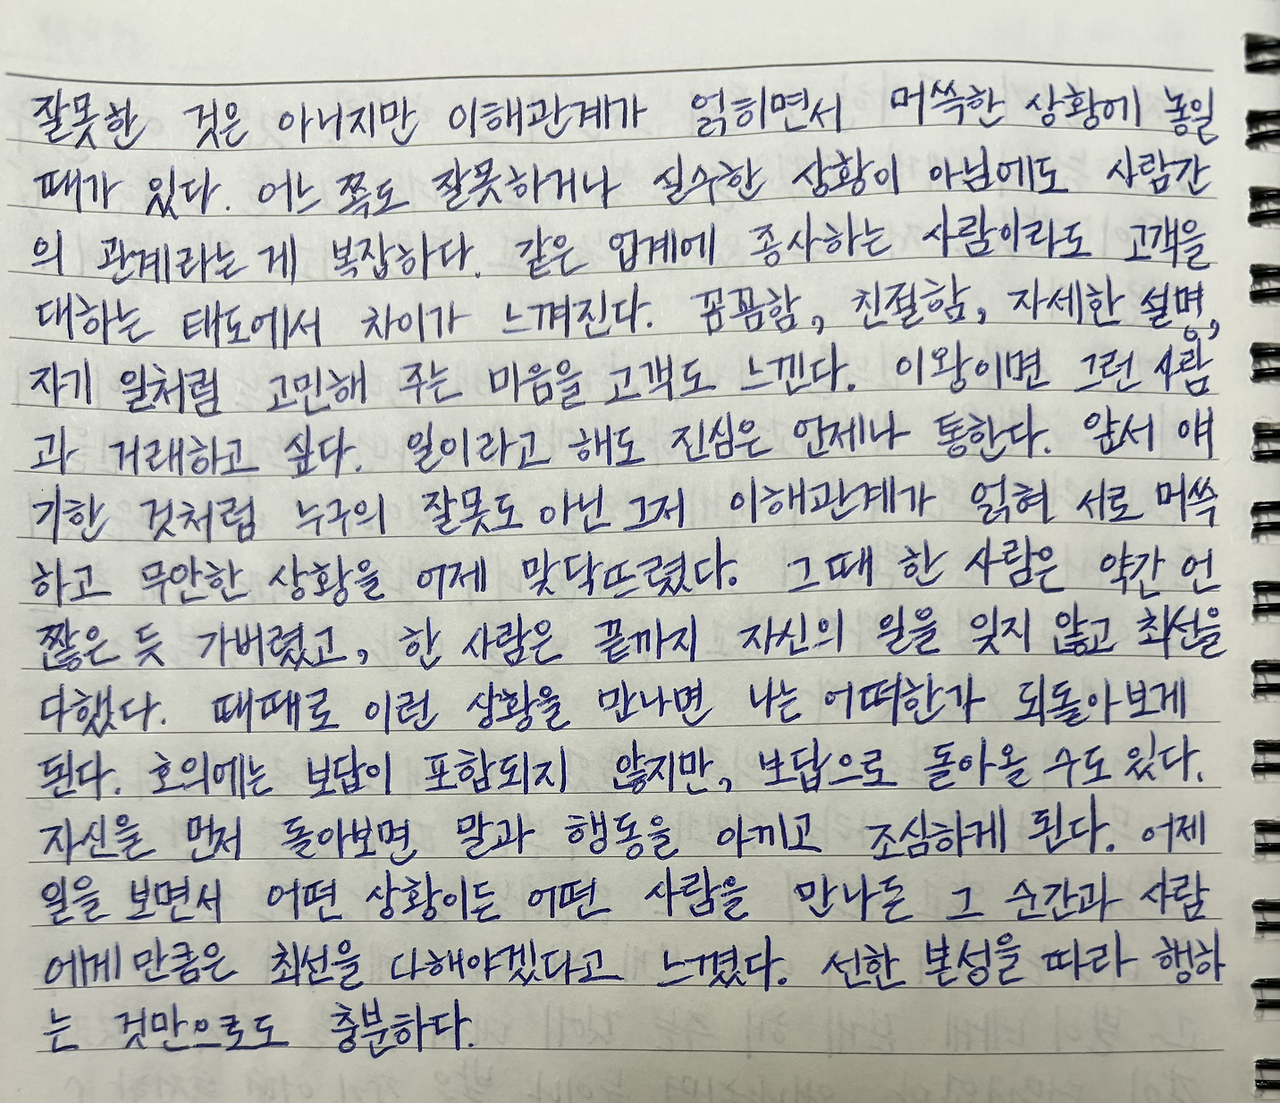 잘못한 것은 아니지만 이해관계가 얽히면서 머쓱한 상황에 놓일
때가 있다. 어느 쪽도 잘못하거나 실수한 상황이 아님에도 사람간
의 관계라는 게 복잡하다. 같은 업계에 종사하는 사람이라도 고객을
대하는 태도에서 차이가 느껴진다. 꼼꼼함, 친절함, 자세한 설명,
자기 일처럼 고민해 주는 마음을 고객도 느낀다. 이왕이면 그런 사람
과 거래하고 싶다. 일이라고 해도 진심은 언제나 통한다. 앞서 얘
기한 것처럼 누구의 잘못도 아닌 그저 이해관계가 얽혀 서로 머쓱
하고 무안한 상황을 어제 맞닥뜨렸다. 그때 한 사람은 약간 언
짢은 듯 가버렸고, 한 사람은 끝까지 자신의 일을 잊지 않고 최선을
다했다. 때때로 이런 상황을 만나면 나는 어떠한가 되돌아보게
된다. 호의에는 보답이 포함되지 않지만, 보답으로 돌아올 수도 있다.
자신을 먼저 돌아보면 말과 행동을 아끼고 조심하게 된다. 어제
일을 보면서 어떤 상황이든 어떤 사람을 만나든 그 순간과 사람
에게만큼은 최선을 다해야겠다고 느꼈다. 선한 본성을 따라 행하
는 것만으로도 충분하다.